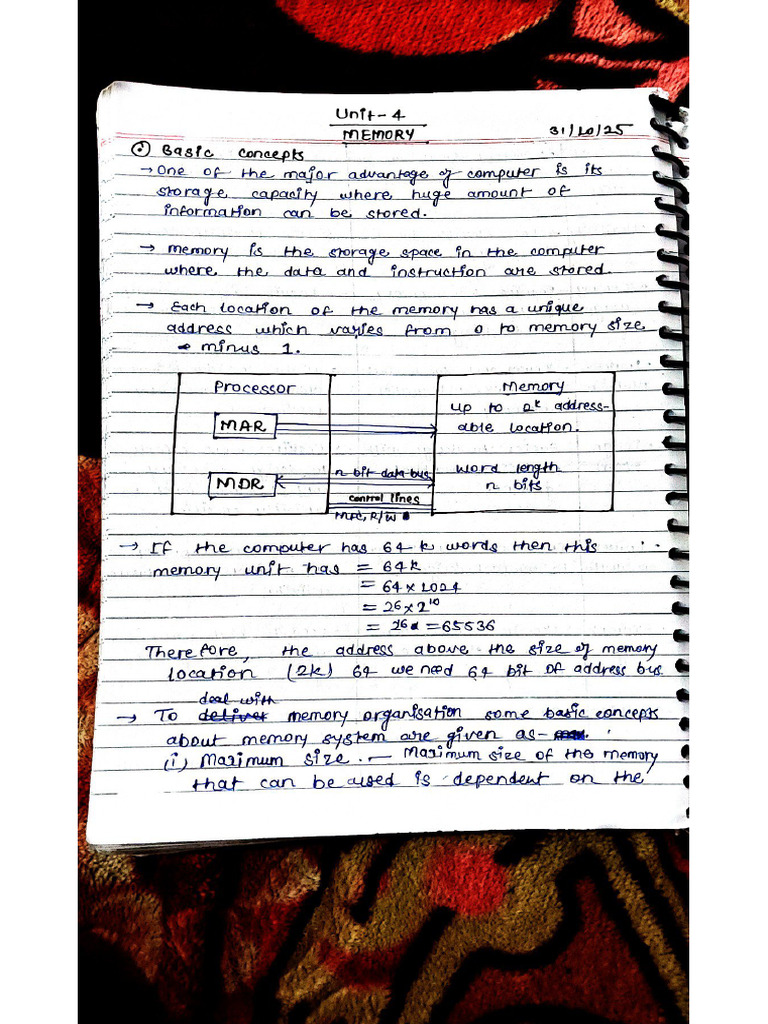 Unit-4
MEMORY 31/10/25
Basic concepts
→ One of the major advantage of computer is its
storage capacity where huge amount of
information can be stored.
→ Memory is the storage space in the computer
where the data and instruction are stored.
→ Each location of the memory has a unique
address which varies from 0 to memory size
minus 1.
Processor
MAR
MDR
n bit data bus
control lines
MFC, R/W
Memory
up to 2ᵏ address-
able location.
word length
n bits
→ If the computer has 64 k words then this
memory unit has = 64k
= 64 x 1024
= 26 x 2¹⁰
= 26 = 65536
Therefore, the address above the size of memory
location (2k) 64 we need 64 bit of address bus
deal with
→ To deliver memory organisation some basic concepts
about memory system are given as-
(i) Maximum size. — Maximum size of the memory
that can be used is dependent on the